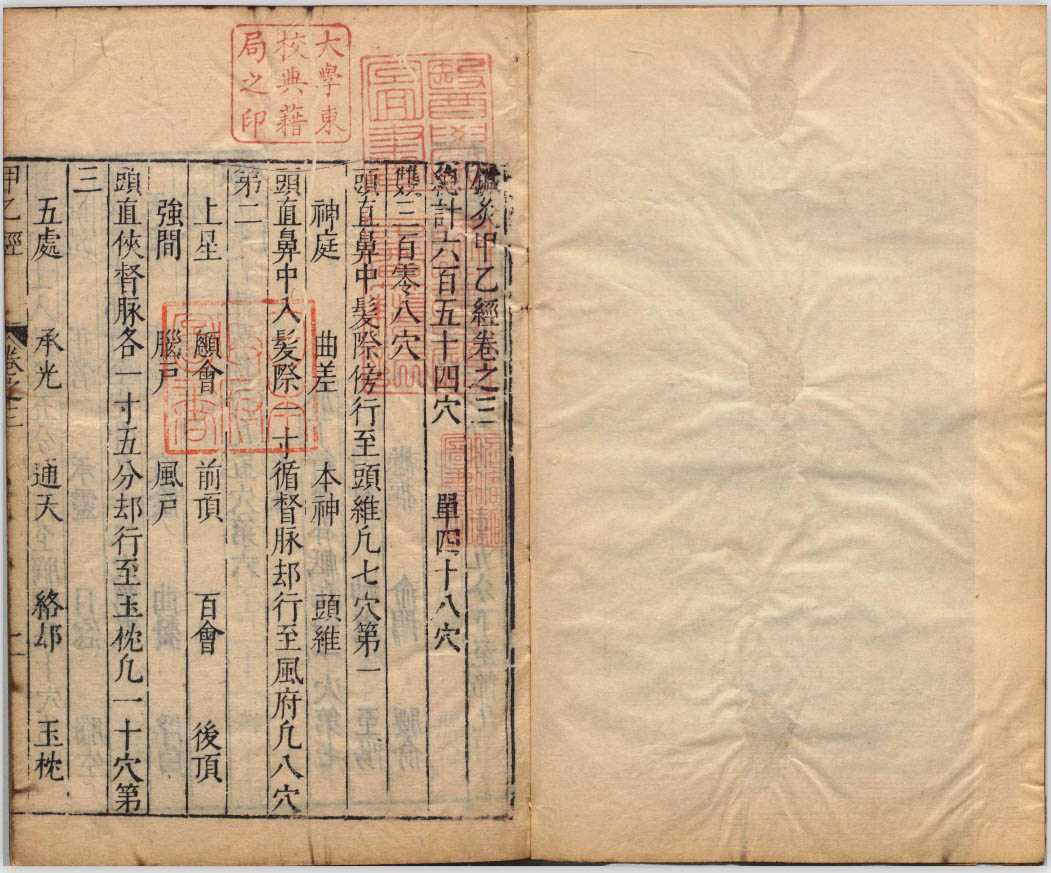 大學東
校典藉
局之印
鍼灸甲乙經卷之三
總計六百五十四穴　單四十八穴
雙三百零八穴
頭直鼻中髮際傍行至頭維凢七穴第一
神庭　曲差　本神　頭維
頭直鼻中入髮際一寸循督脉却行至風府凢八穴
第二
上星　顖會　前頂　百會　後頂
強間　腦戶　風戶
頭直俠督脉各一寸五分却行至玉枕凢一十穴第
三
五處　承光　通天　絡却　玉枕
甲乙經　卷之三　一